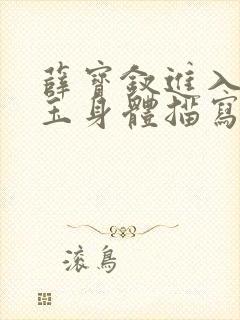 薛寶釵進入
玉身體描寫
滾鳥